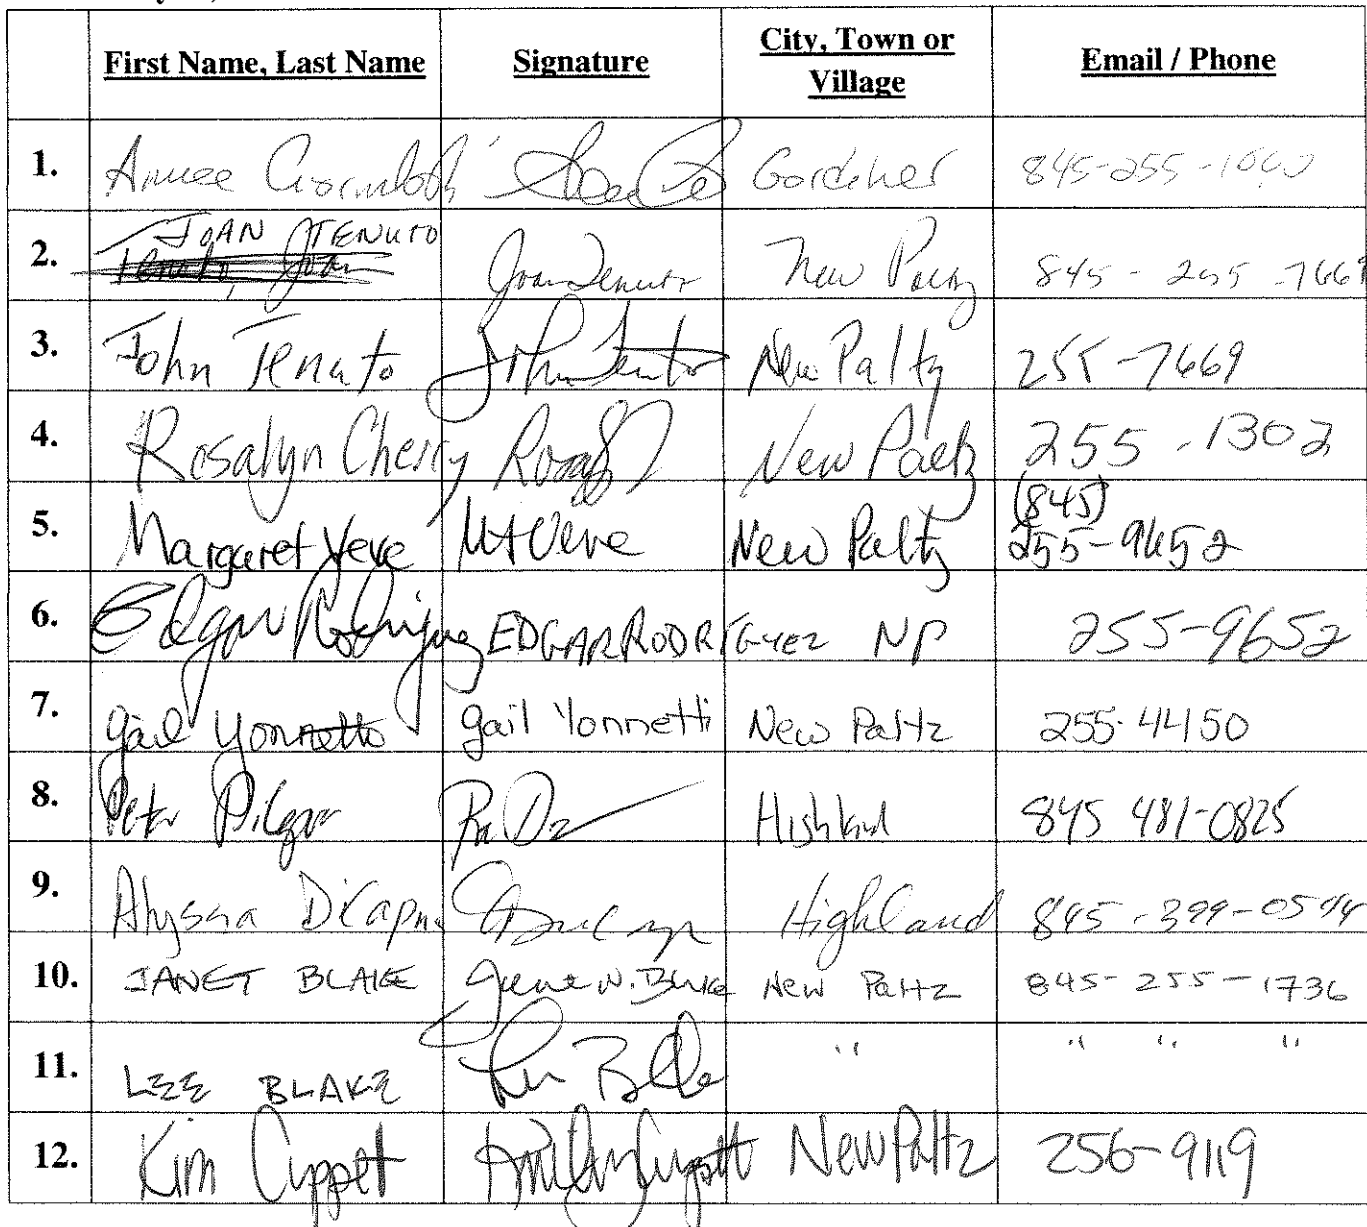 First Name, Last Name Signature City, Town or Village Email / Phone
1. Gardiner 845-255-
2. JOAN TENUTO Tenuto, Joan Joan Tenuto New Paltz 845-255-7669
3. John Tenuto John Tenuto New Paltz 255-7669
4. Rosalyn Cherry New Paltz 255-1302
5. Margaret Veve MA Veve New Paltz (845) 255-9652
6. Edgar Rodriguez EDGAR RODRIGUEZ NP 255-9652
7. Gail Yonnetti gail Yonnetti New Paltz 255-4450
8. Peter Pilgar Highland 845 481-0825
9. Alyssa Highland 845-399-0544
10. JANET BLAKE New Paltz 845-255-1736
11. LEE BLAKE " " " "
12. Kim Cuppett New Paltz 256-9119